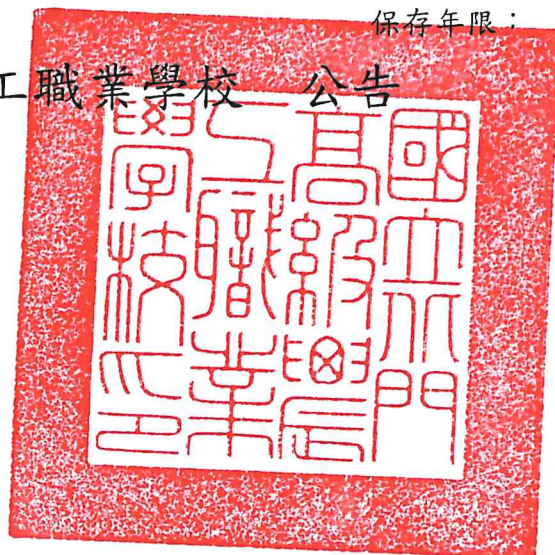 保存年限：
工職業學校　公告
國立北門
高級農
工職業
學校印